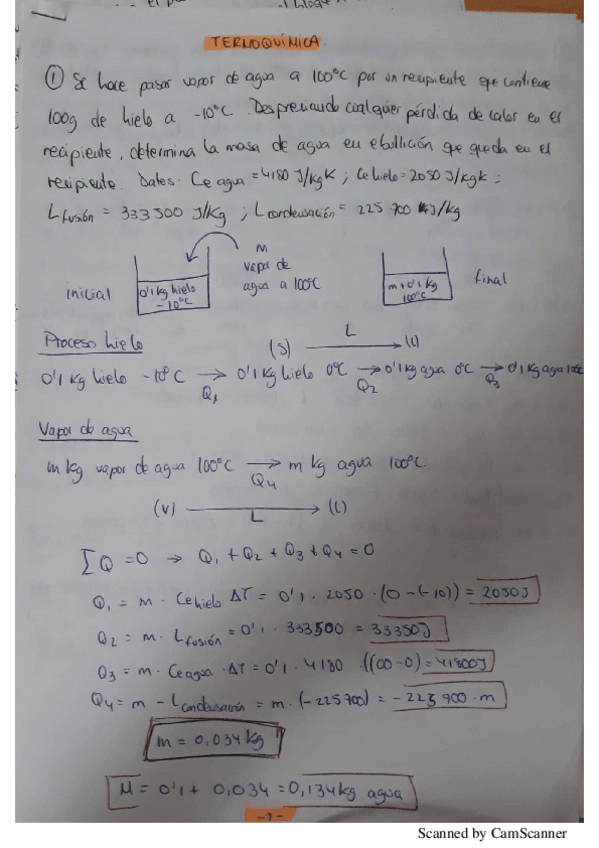 TERMOQUÍMICA
① Se hace pasar vapor de agua a 100°C por un recipiente que contiene
100g de hielo a -10°C. Despreciando cualquier pérdida de calor en el
recipiente, determina la masa de agua en ebullición que queda en el
recipiente. Datos: Ce agua = 4180 J/kgK ; Ce hielo = 2050 J/kgK ;
Lfusión = 333500 J/kg ; Lcondensación = 225 700 J/kg
inicial
0'1 kg hielo
-10°C
m
vapor de
agua a 100°C
m+0'1 kg
100°C
final
Proceso hielo
(s) L (l)
0'1 kg hielo -10°C → Q1 0'1 kg hielo 0°C → Q2 0'1 kg agua 0°C → Q3 0'1 kg agua 100°C
Vapor de agua
m kg vapor de agua 100°C → Q4 m kg agua 100°C
(v) L (l)
∑Q = 0 → Q1 + Q2 + Q3 + Q4 = 0
Q1 = m · Ce hielo ΔT = 0'1 · 2050 · (0 - (-10)) = 2050J
Q2 = m · Lfusión = 0'1 · 333500 = 33350J
Q3 = m · Ce agua · ΔT = 0'1 · 4180 · (100-0) = 41800J
Q4 = m - Lcondensación = m · (-225700) = -225 700 · m
m = 0,034 kg
M = 0'1 + 0,034 = 0,134 kg agua
-1-
Scanned by CamScanner